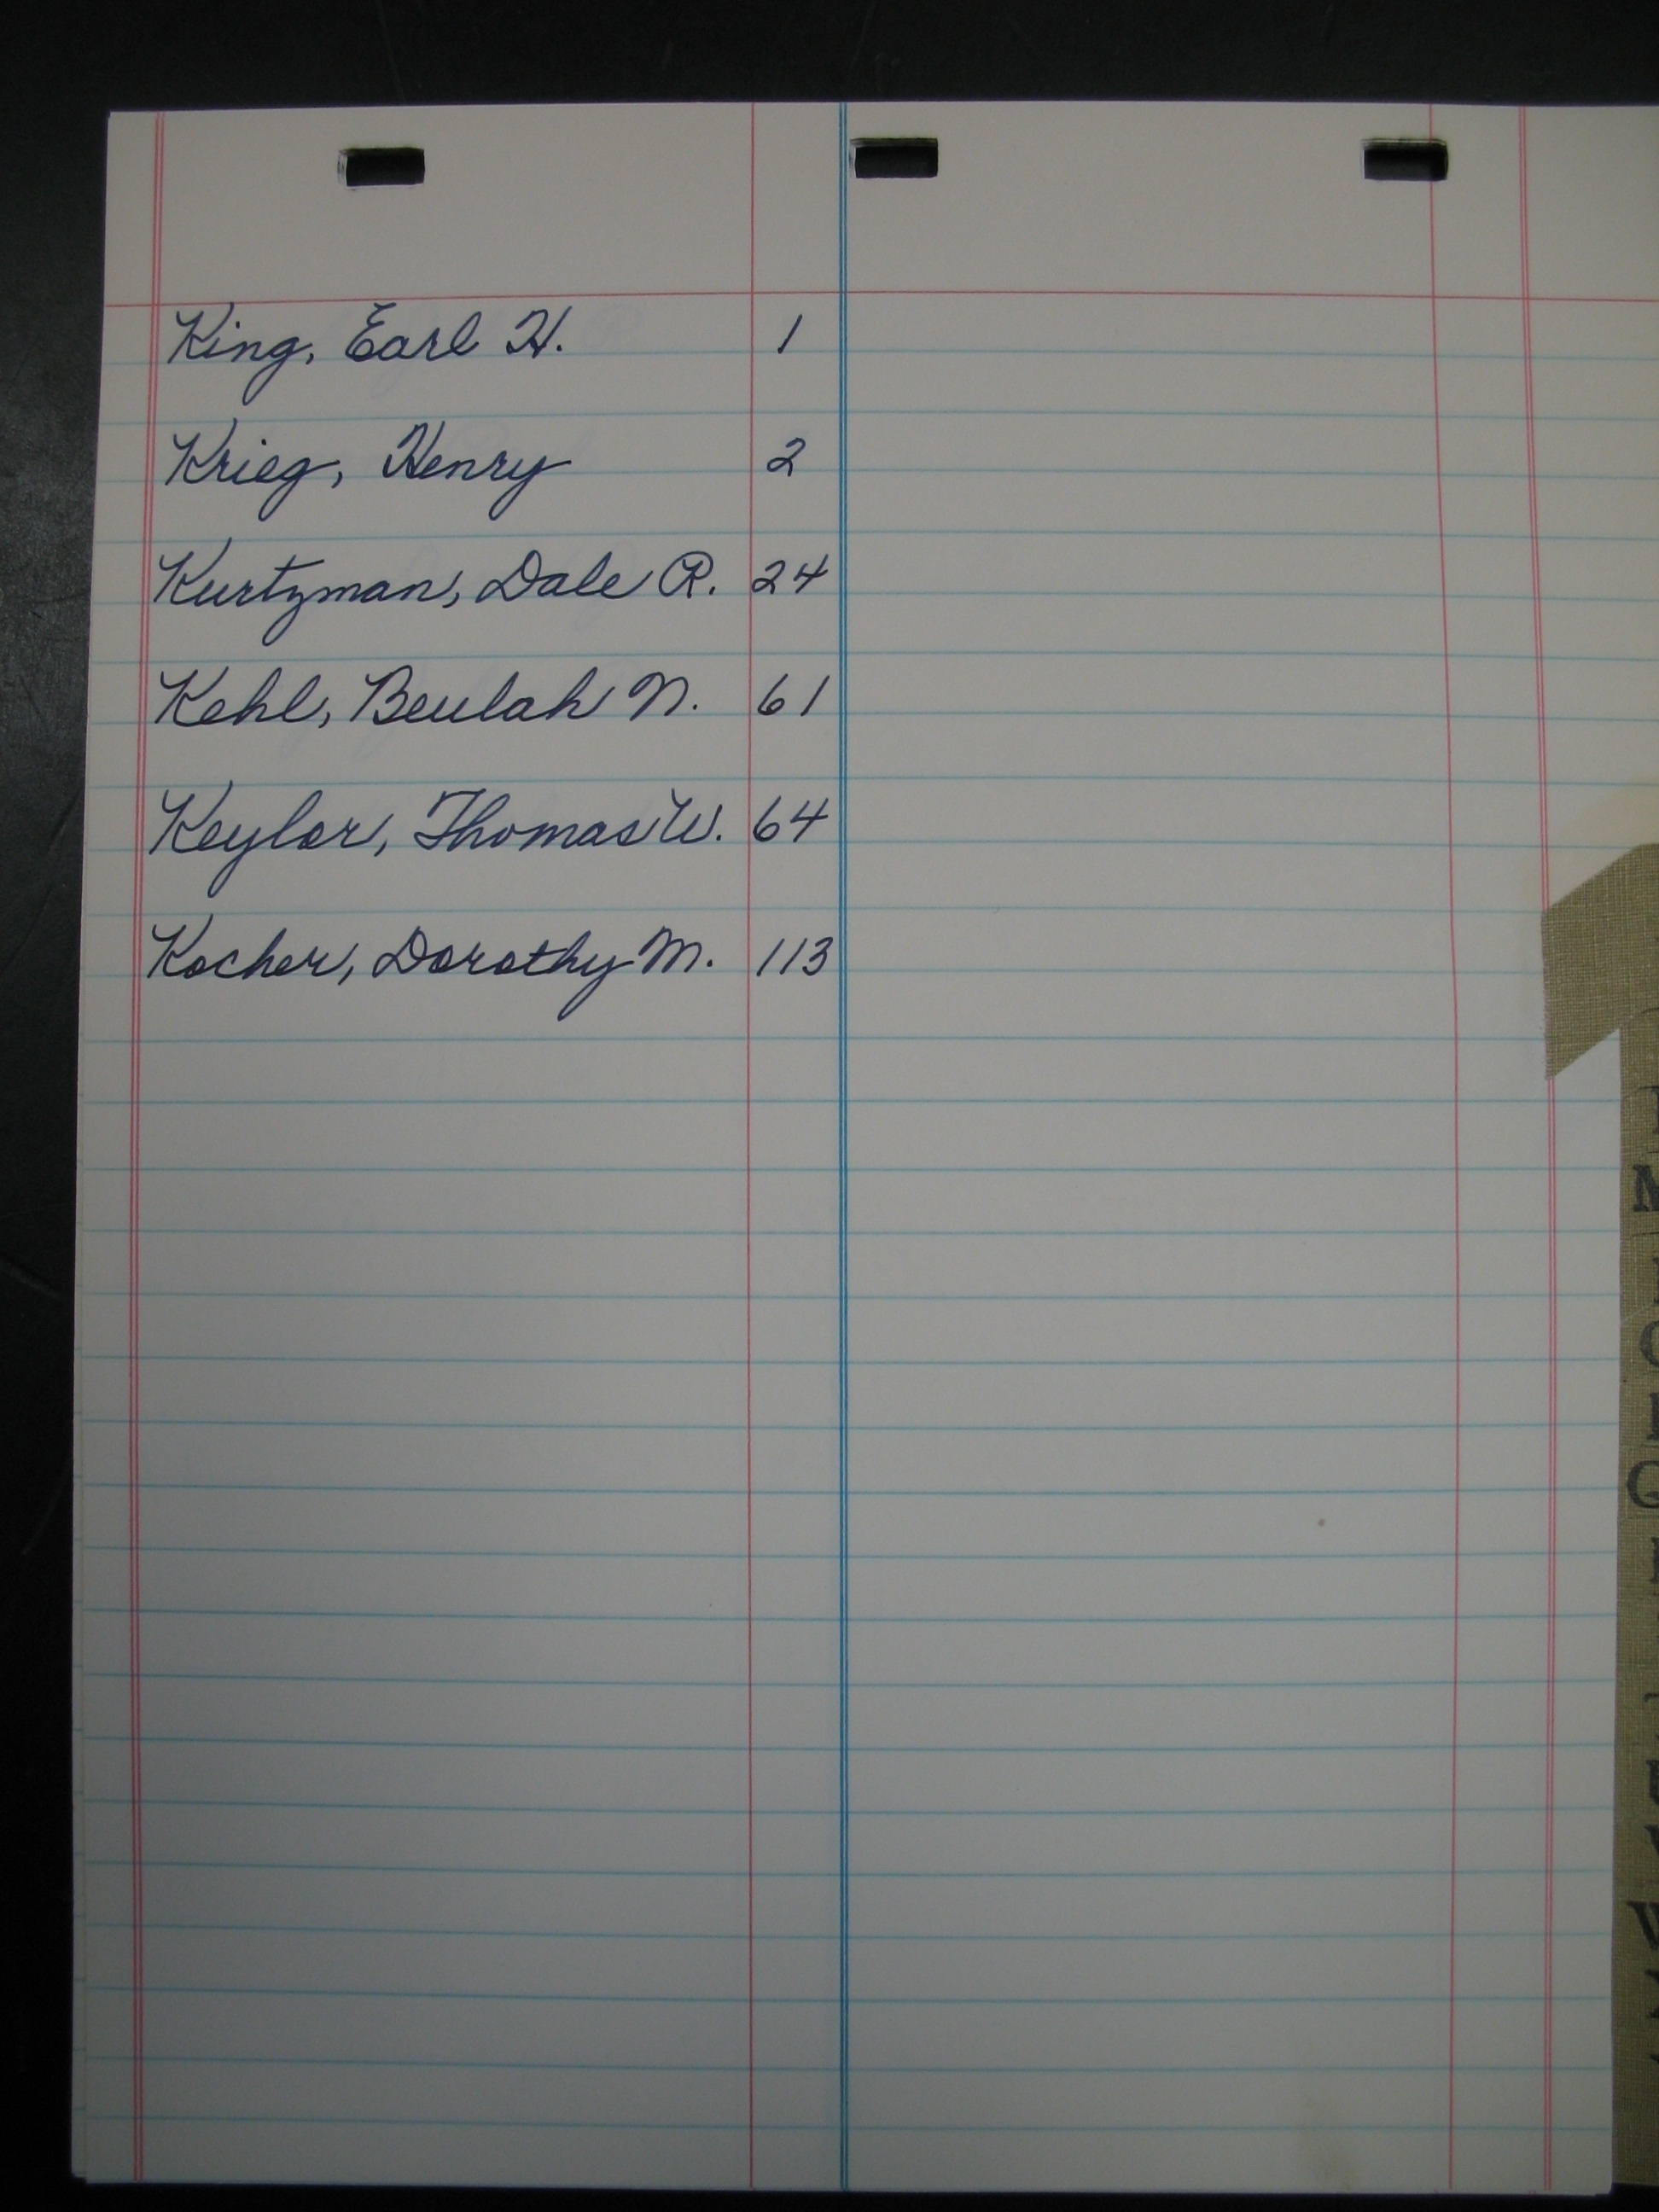 King, Earl H. 1
Krieg, Henry 2
Kurtzman, Dale R. 24
Kehl, Beulah N. 61
Keylor, Thomas W. 64
Kocher, Dorothy M. 113